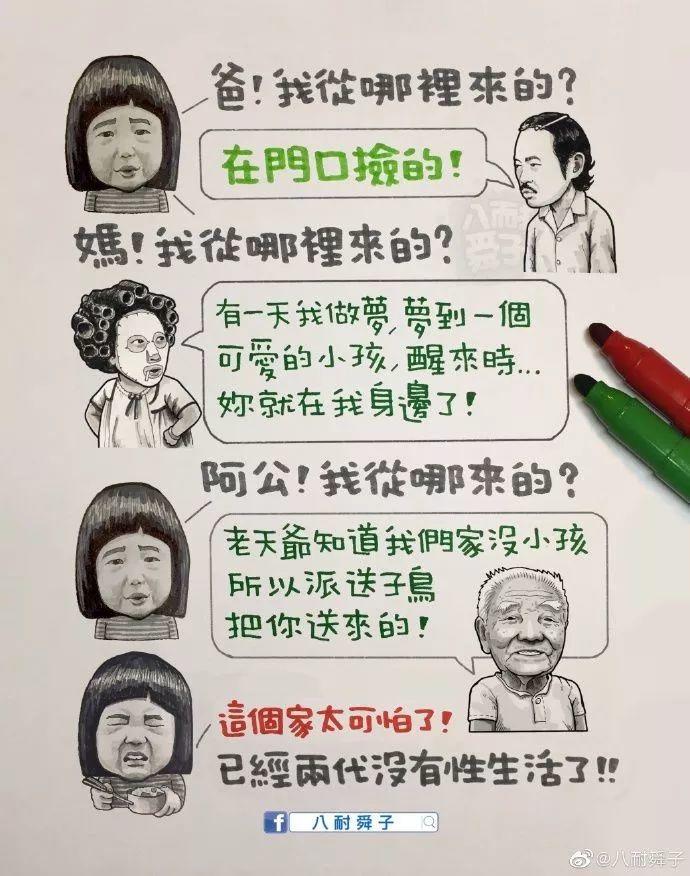 爸!我從哪裡來的?
在門口撿的!
媽!我從哪裡來的?
有一天我做夢,夢到一個
可愛的小孩,醒來時...
妳就在我身邊了!
阿公!我從哪來的?
老天爺知道我們家没小孩
所以派送子鳥
把你送來的!
這個家太可怕了!
已經兩代没有性生活了!!
f 八耐舜子
@八耐舜子
八耐舜子